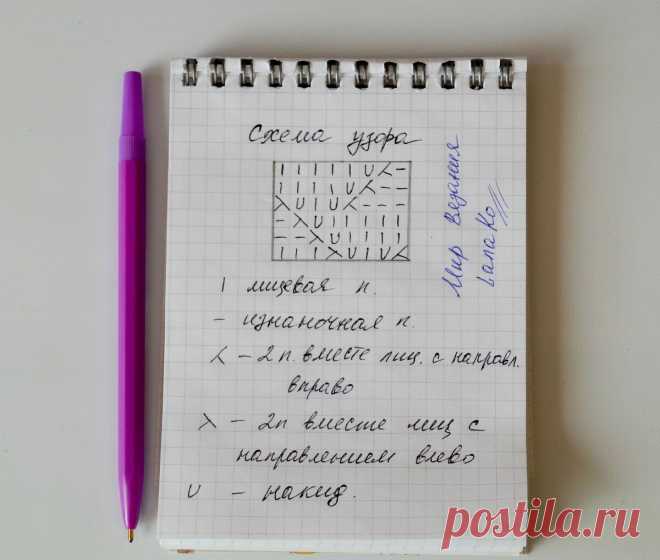 Схема узора
| | | | | U ⋌ –
| | | | U ⋌ – –
⋋ U | U ⋌ – – –
– ⋋ U | | | | |
– – ⋋ U | | | |
| | | ⋋ U | U ⋌
Мир Вязания
Lanako
| лицевая п.
– изнаночная п.
⋌ – 2 п. вместе лиц. с направл.
вправо
⋋ – 2п вместе лиц с
направлением влево
U – накид.
postila.ru